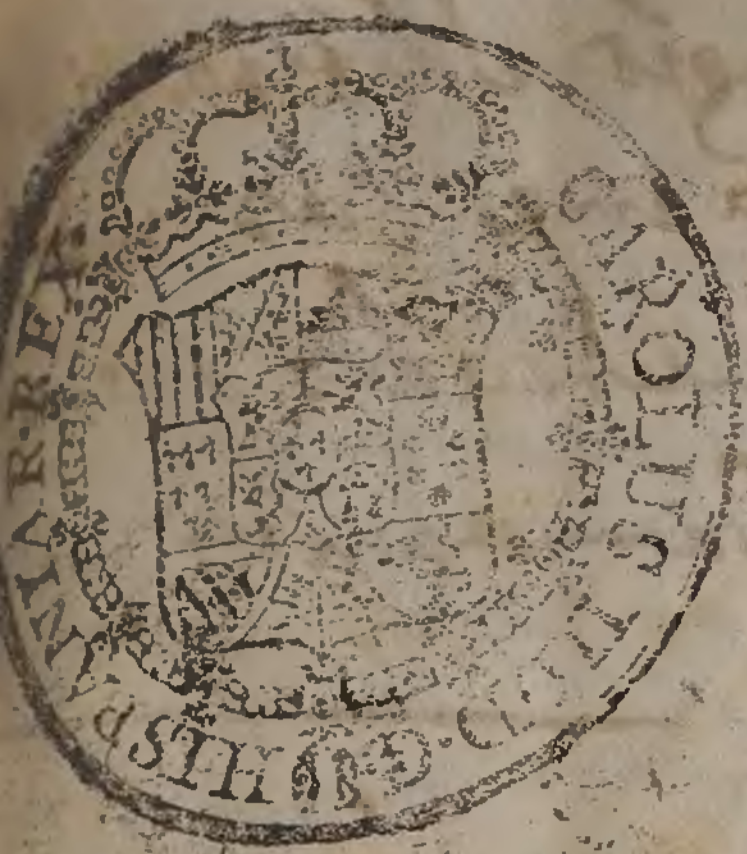 CAROLUS III D·G·HISPANIAR·REX